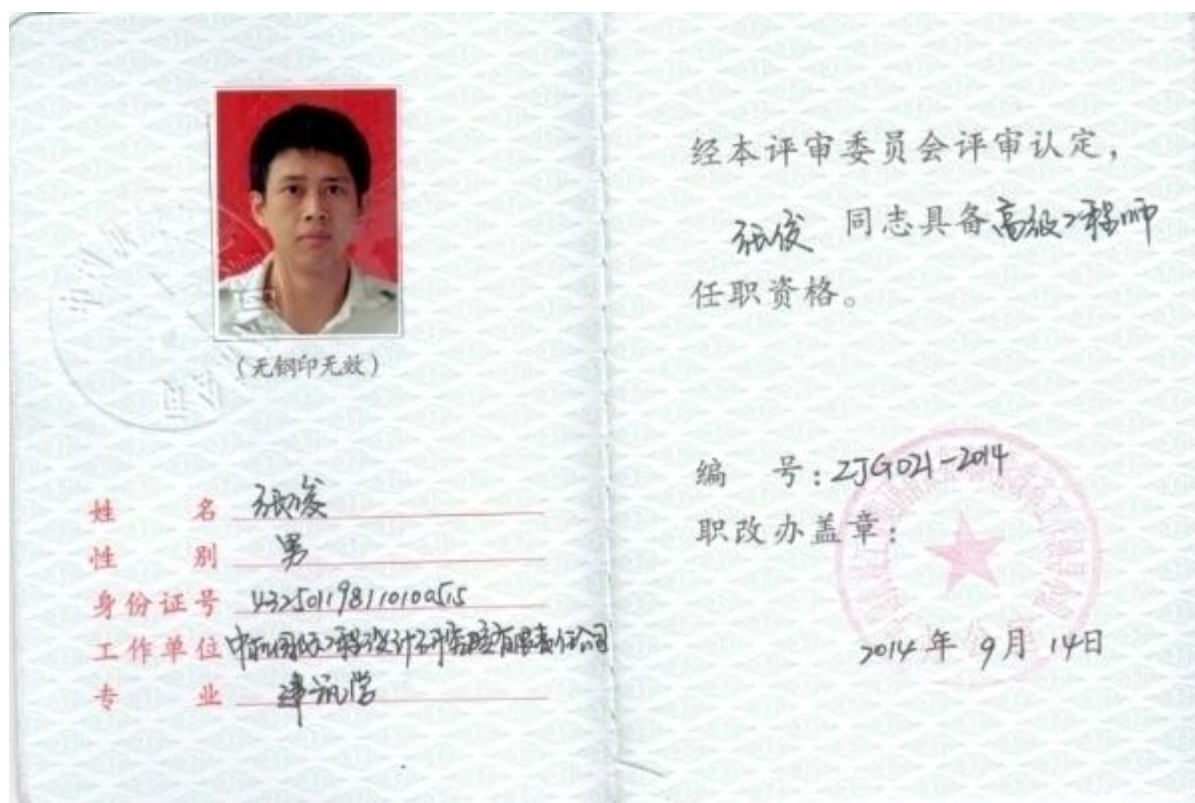 (无钢印无效)
姓 名 张俊
性 别 男
身份证号 432501198110100515
工作单位 中机国际工程设计研究院有限责任公司
专 业 建筑学
经本评审委员会评审认定，
张俊 同志具备高级工程师
任职资格。
编 号：ZJG021-2014
职改办盖章：
2014年9月14日